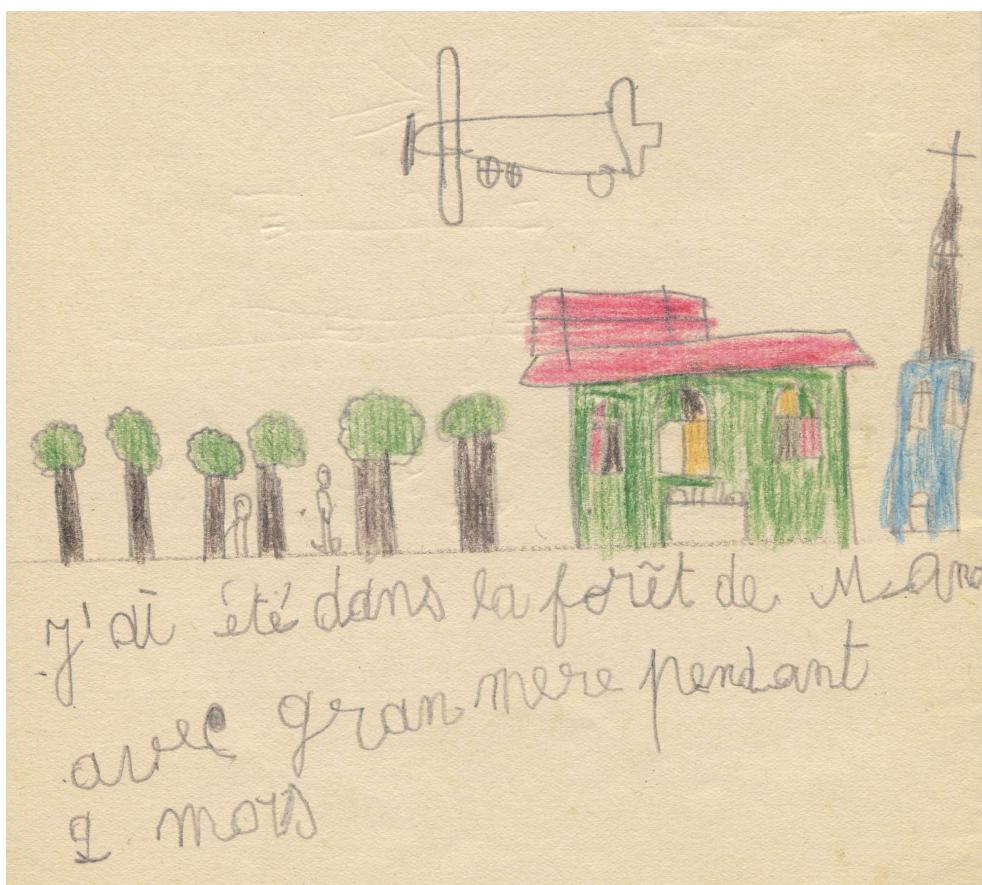 J'ai été dans la forêt de
avec gran mere pendant
2 mois